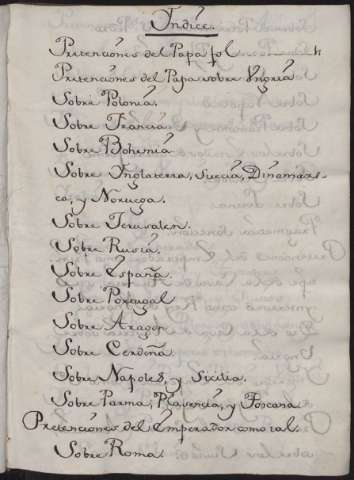 Índice.
Pretenciónes del Papa fol. 4
Pretenciónes del Papa sobre Vngría
Sobre Polonia.
Sobre Francia
Sobre Bohemia
Sobre Ynglaterra, Suecia, Dinamar-
ca, y Noruega.
Sobre Jerusalen.
Sobre Rusia.
Sobre España.
Sobre Portugal
Sobre Aragon
Sobre Cerdeña.
Sobre Napoles, y Sicilia.
Sobre Parma, Placencia, y Toscana
Pretenciónes del Emperador como tal.
Sobre Roma.